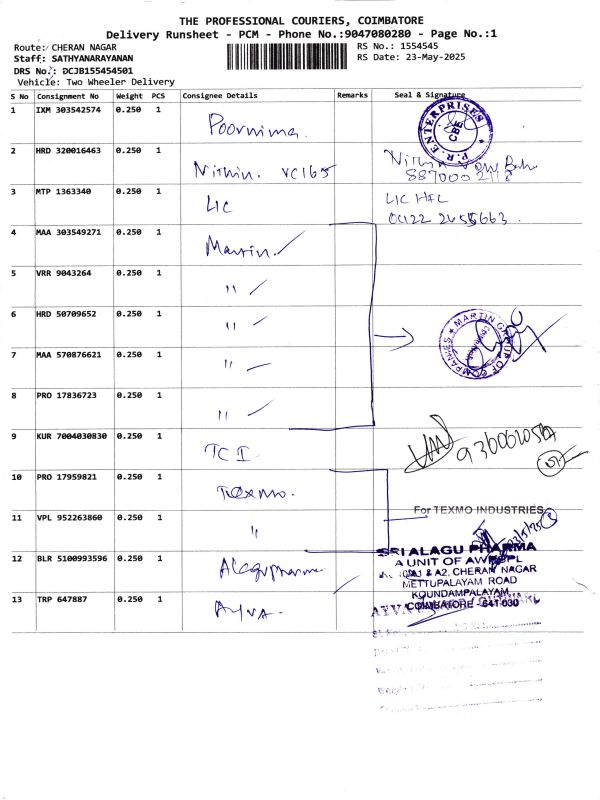 THE PROFESSIONAL COURIERS, COIMBATORE
Delivery Runsheet - PCM - Phone No.:9047080280 - Page No.:1
Route: CHERAN NAGAR
RS No.: 1554545
Staff: SATHYANARAYANAN
RS Date: 23-May-2025
DRS No.: DCJB155454501
Vehicle: Two Wheeler Delivery
S No Consignment No Weight PCS Consignee Details Remarks Seal & Signature
1 IXM 303542574 0.250 1 Poornima.
P.R. ENTERPRISES CBE
2 HRD 320016463 0.250 1 Nithin. VC165 Nithin
3 MTP 1363340 0.250 1 LIC LIC HFL
0422 2455663.
4 MAA 303549271 0.250 1 Martin
5 VRR 9043264 0.250 1 "
6 HRD 50709652 0.250 1 "
MARTIN GROUP OF COMPANIES
7 MAA 570876621 0.250 1 "
8 PRO 17836723 0.250 1 "
9 KUR 7004030830 0.250 1 TCI
10 PRO 17959821 0.250 1 Texmo.
For TEXMO INDUSTRIES
11 VPL 952263860 0.250 1 "
12 BLR 5100993596 0.250 1 Alagu pharma
SRI ALAGU PHARMA
A UNIT OF
& A2, CHERAN NAGAR
METTUPALAYAM ROAD
KOUNDAMPALAYAM
COIMBATORE - 641 030
13 TRP 647887 0.250 1 Ayva.
AYVA